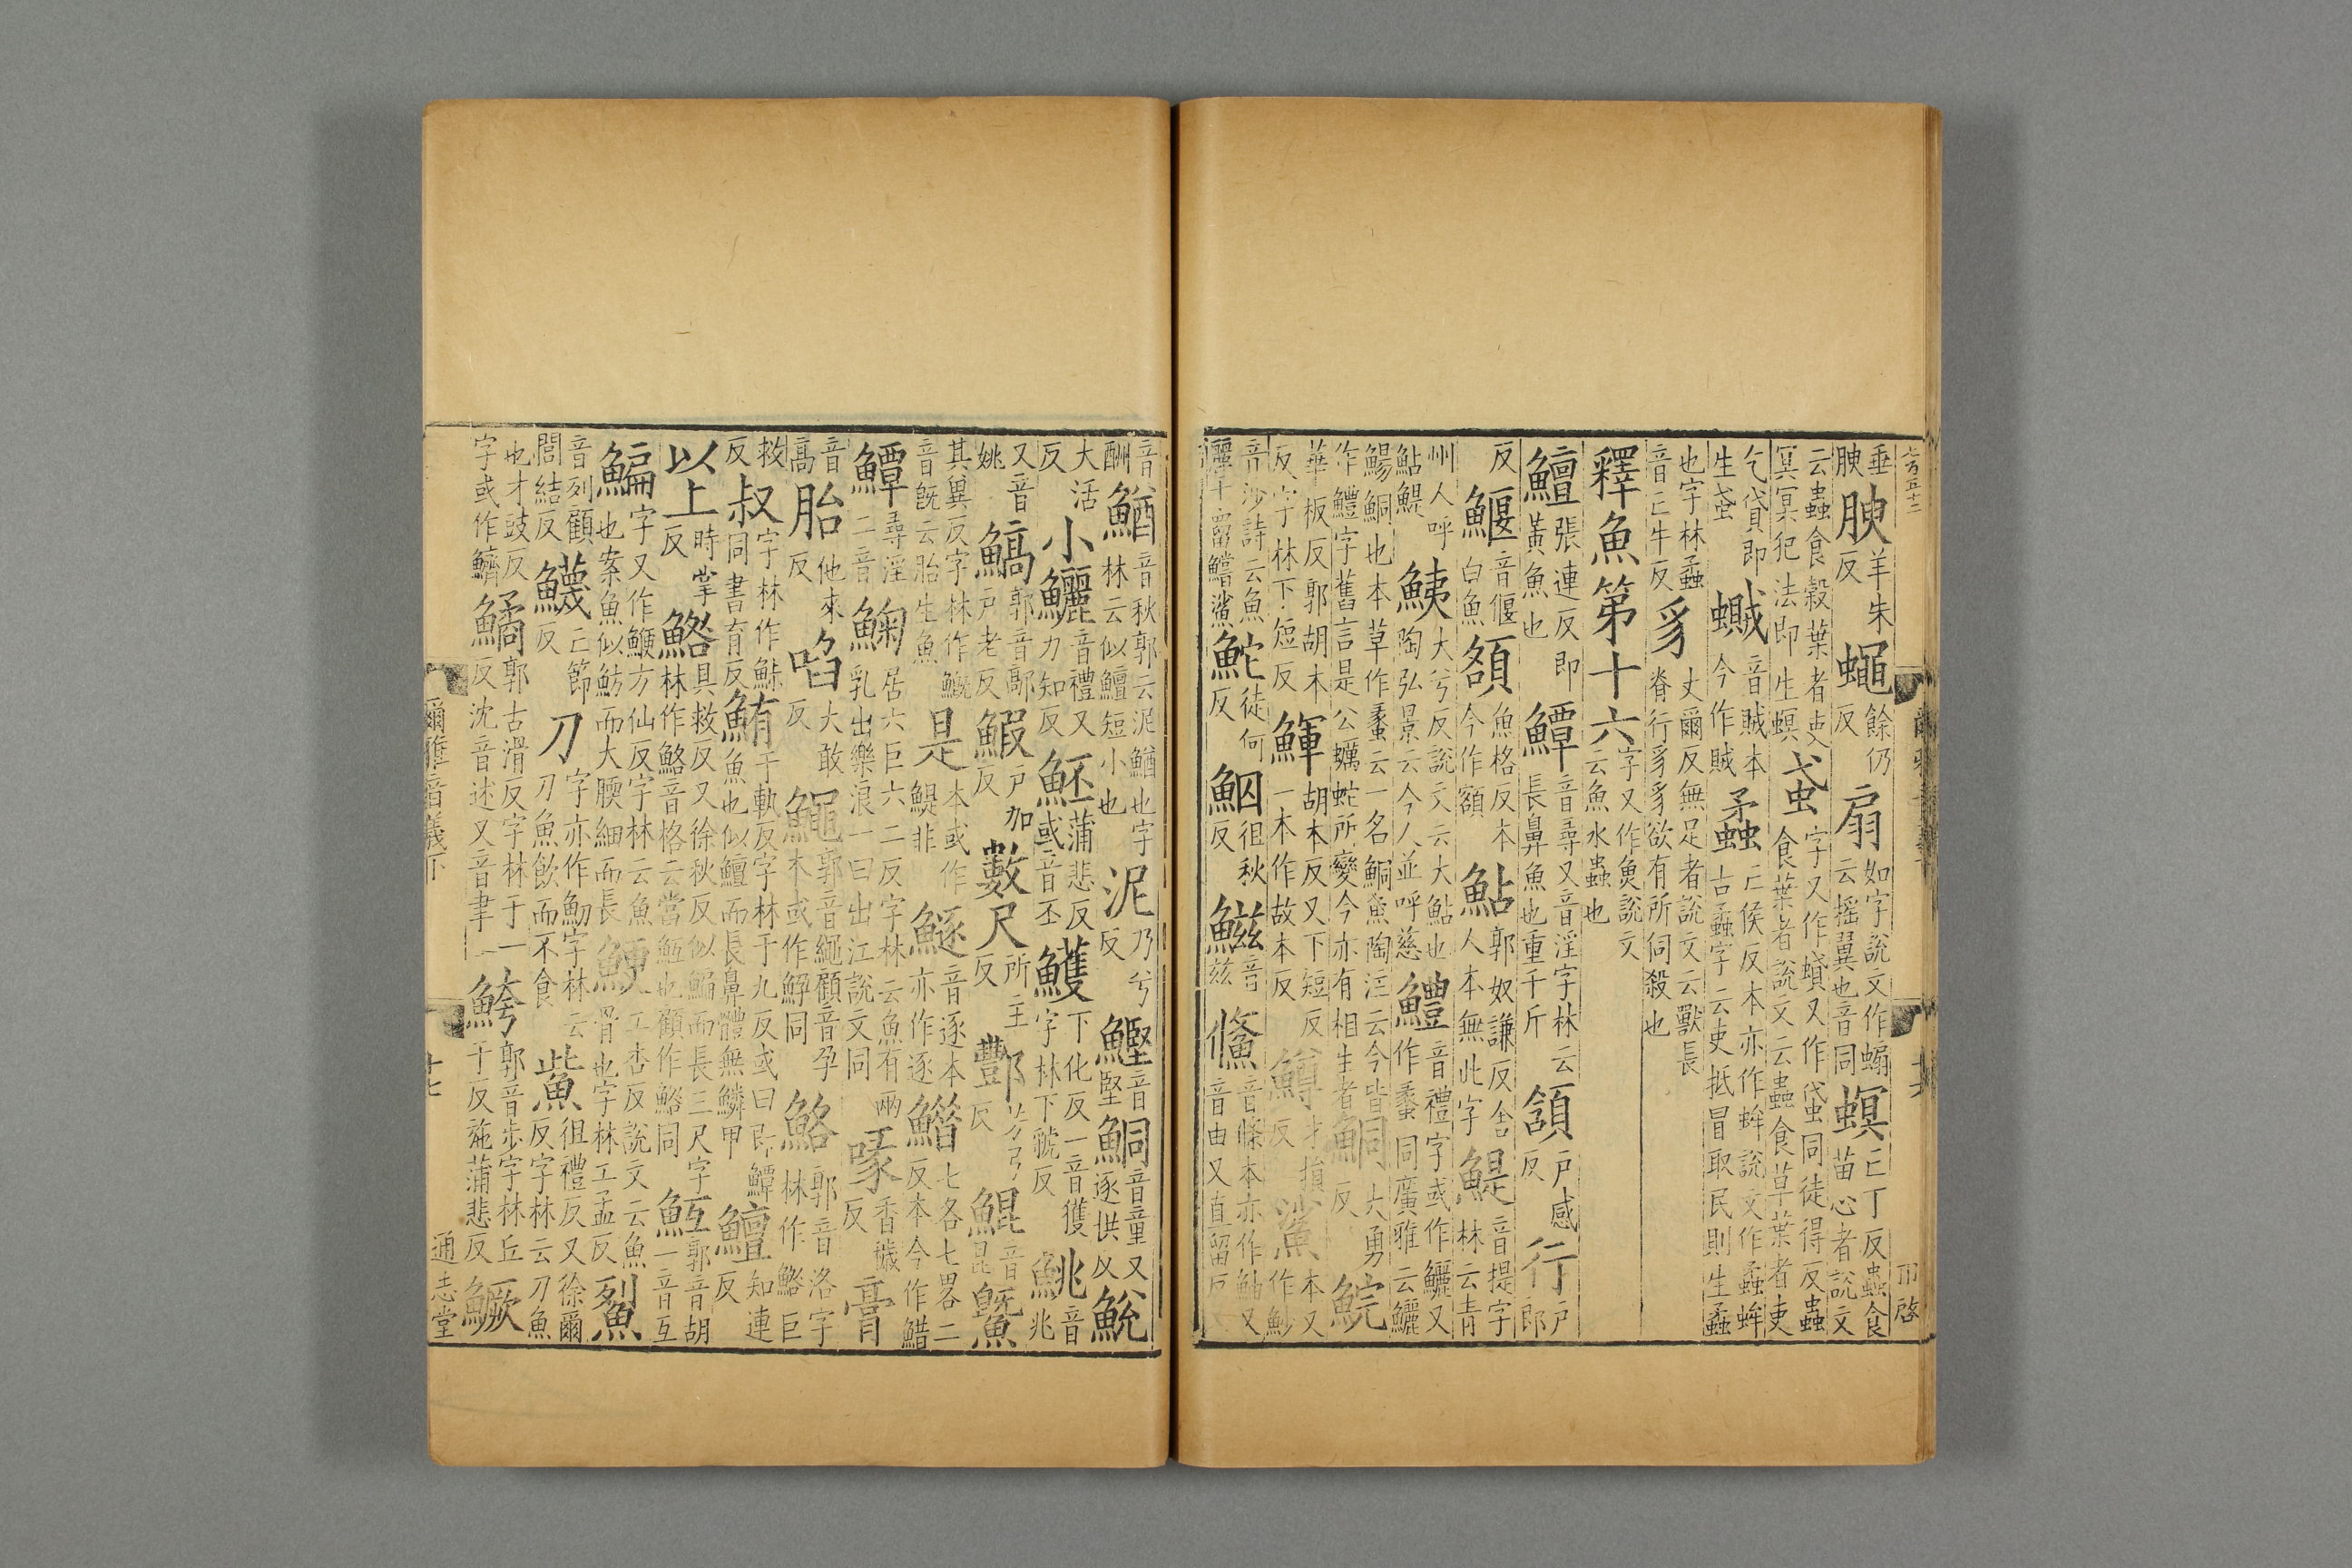 七百五十三 卩啓
垂腴腴羊朱反蠅餘仍反扇如字說文作蝙云搖翼也音同螟亡丁反蟲食苗心者說文
云蟲食穀葉者吏冥冥犯法即生螟䘮字又作蟘又作蟘同徒得反蟲食葉者說文云蟲食草葉者吏
乞貸即生䘮蠈音賊本今作賊蟊亡侯反本亦作蛑說文作蟊蛑古蟊字云吏抵冒取民則生蟊
也字林蟊音亡牛反豸丈爾反無足者說文云獸長脊行豸豸欲有所伺殺也
釋魚第十六字又作䱷說文云魚水蟲也
鱣張連反即黃魚也鱏音尋又音淫字林云長鼻魚也重千斤頷戶感反行戶郎
反鰋音偃白魚也頟魚格反本今作額鮎郭奴謙反舍人本無此字鯷音提字林云青
州人呼鮎鯷鮧大兮反說文云大鮎也陶弘景云今人並呼慈鱧音禮字或作鱺又作蠡同廣雅云鱺
鰑鮦也本草作蠡云一名鮦魚陶注云今皆作鱧字舊言是公蠣蛇所變今亦有相生者鮦大勇反鯇
華板反郭胡本反字林下短反鯶胡本反又下短反一本作故本反鱒才損反鯊本又作魦
音沙詩云魚麗于罶鱨鯊鮀徒何反鮂徂秋反鰦音兹鯈音條本亦作鮋又音由又直留反
音酬鰌音秋郭云泥鰌也字林云似鱣短小也泥乃兮反鰹音堅鮦音童又逐拱反鮵
大活反小鱺音禮又力知反魾蒲悲反或音丕鱯下化反一音獲字林下虢反鮡音兆
又音姚鰝郭音鄗戶老反鰕戶加反數尺所主反酆芳弓反鯤音昆鱀
其冀反字林作鱀音旣云胎生魚是本或作鯷非鱁音逐本亦作逐䱜七各七畧二反本今作䱜
鱏尋淫二音䱡居六巨六二反字林云魚有兩乳出樂浪一曰出江說文同喙香穢反膏
音高胎他來反啗大敢反鱦郭音繩顧音孕本或作鮮同鮥郭音洛字林作䱟巨
救反叔字林作鮛同書育反鮪于軌反字林于九反或曰即鱏魚也似鱣而長鼻體無鱗甲鱣知連反
以上時掌反䱟具救反又徐秋反似鯿而長三尺字林作鮥音格云當䰽也顧作䱟同䰽郭音胡一音互
鯿字又作鯾方仙反字林云魚也案魚似魴而大腰細而長鯁工杏反說文云魚骨也字林工孟反鮤
音列顧閭結反鱴亡節反刀字亦作魛字林云刀魚飮而不食鮆徂禮反又徐爾反字林云刀魚
也才豉反字或作鱭鱊郭古滑反字林于一反沈音述又音聿鮬郭音步字林丘于反施蒲悲反鱖
爾雅音義下 十七 通志堂